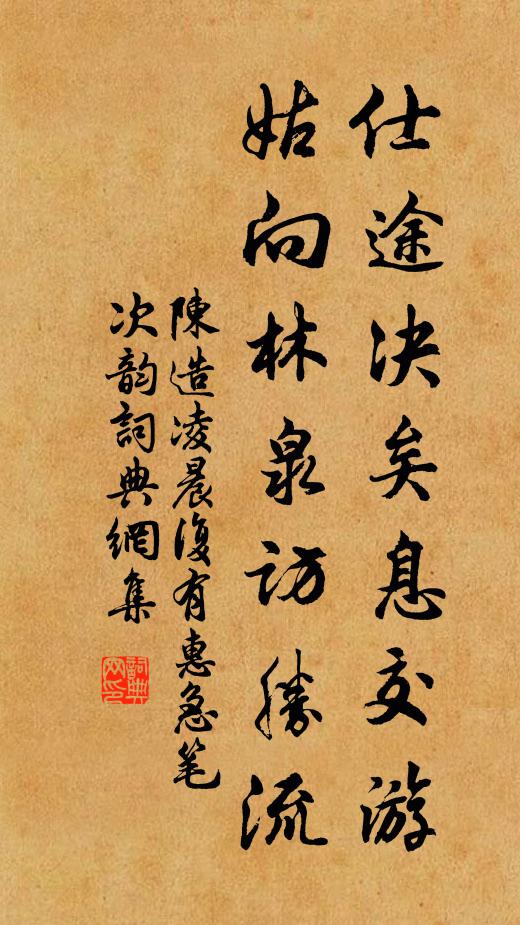 仕途决矣息交游
姑向林泉访勝流
陳造凌晨復有惠急笔
次韵詞典網集
詞典网印